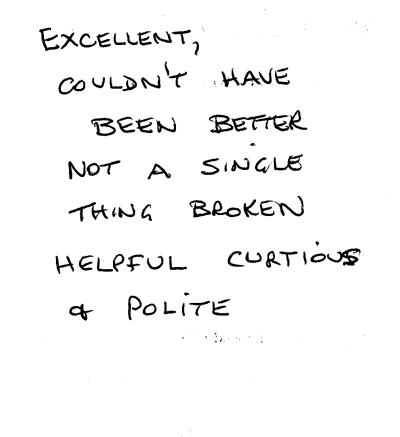 EXCELLENT,
COULDN'T HAVE
BEEN BETTER
NOT A SINGLE
THING BROKEN
HELPFUL CURTIOUS
& POLITE